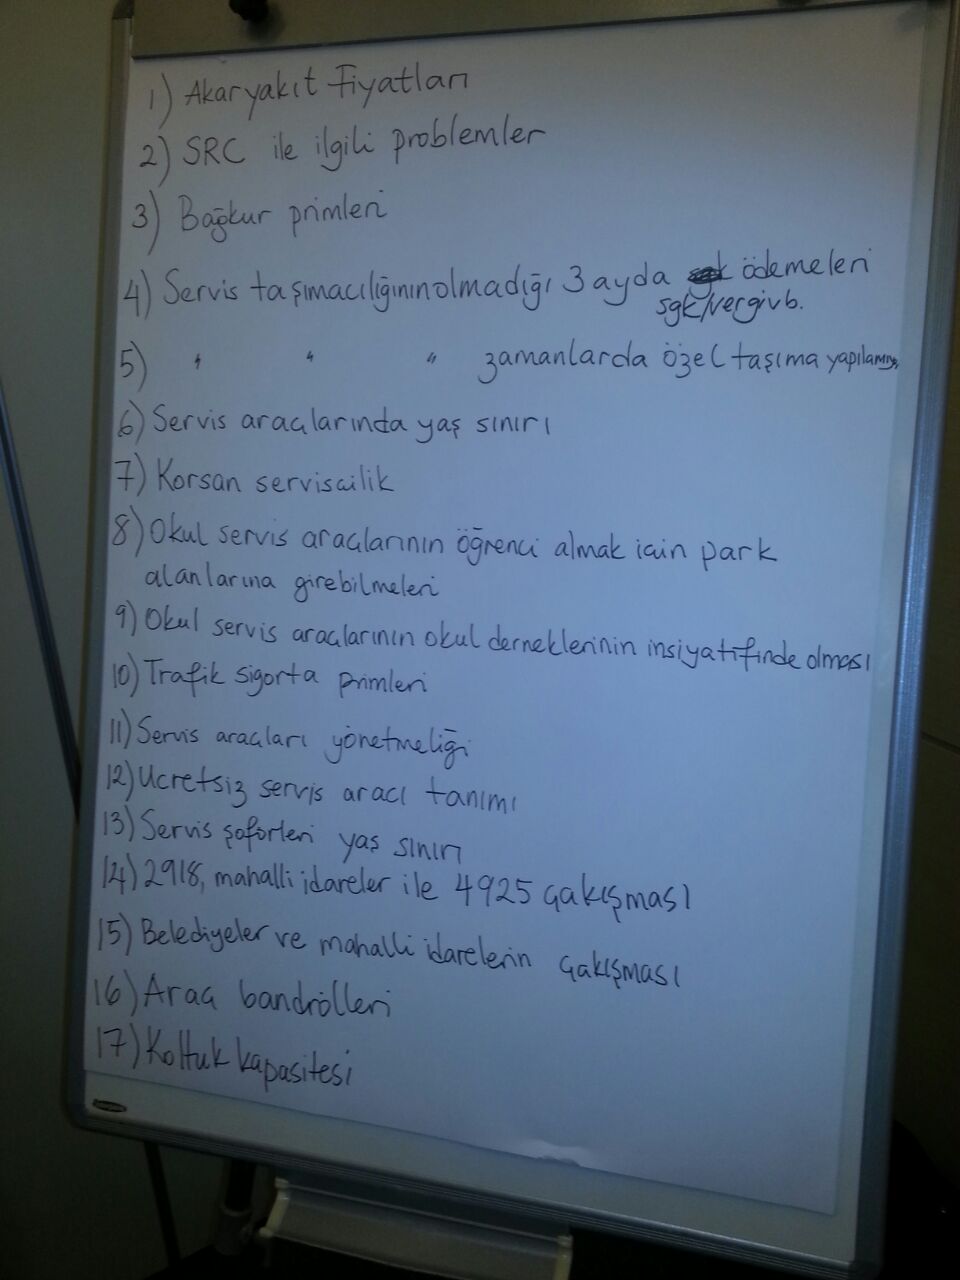 1) Akaryakıt Fiyatları
2) SRC ile ilgili problemler
3) Bağkur primleri
4) Servis taşımacılığının olmadığı 3 ayda ödemeleri
sgk/vergi vb.
5) " " " zamanlarda özel taşıma
6) Servis araçlarında yaş sınırı
7) Korsan servisçilik
8) Okul servis araçlarının öğrenci almak için park
alanlarına girebilmeleri
9) Okul servis araçlarının okul derneklerinin insiyatifinde olması
10) Trafik sigorta primleri
11) Servis araçları yönetmeliği
12) Ücretsiz servis aracı tanımı
13) Servis şoförleri yaş sınırı
14) 2918, mahalli idareler ile 4925 çakışması
15) Belediyeler ve mahalli idarelerin çakışması
16) Araç bandrolleri
17) Koltuk kapasitesi